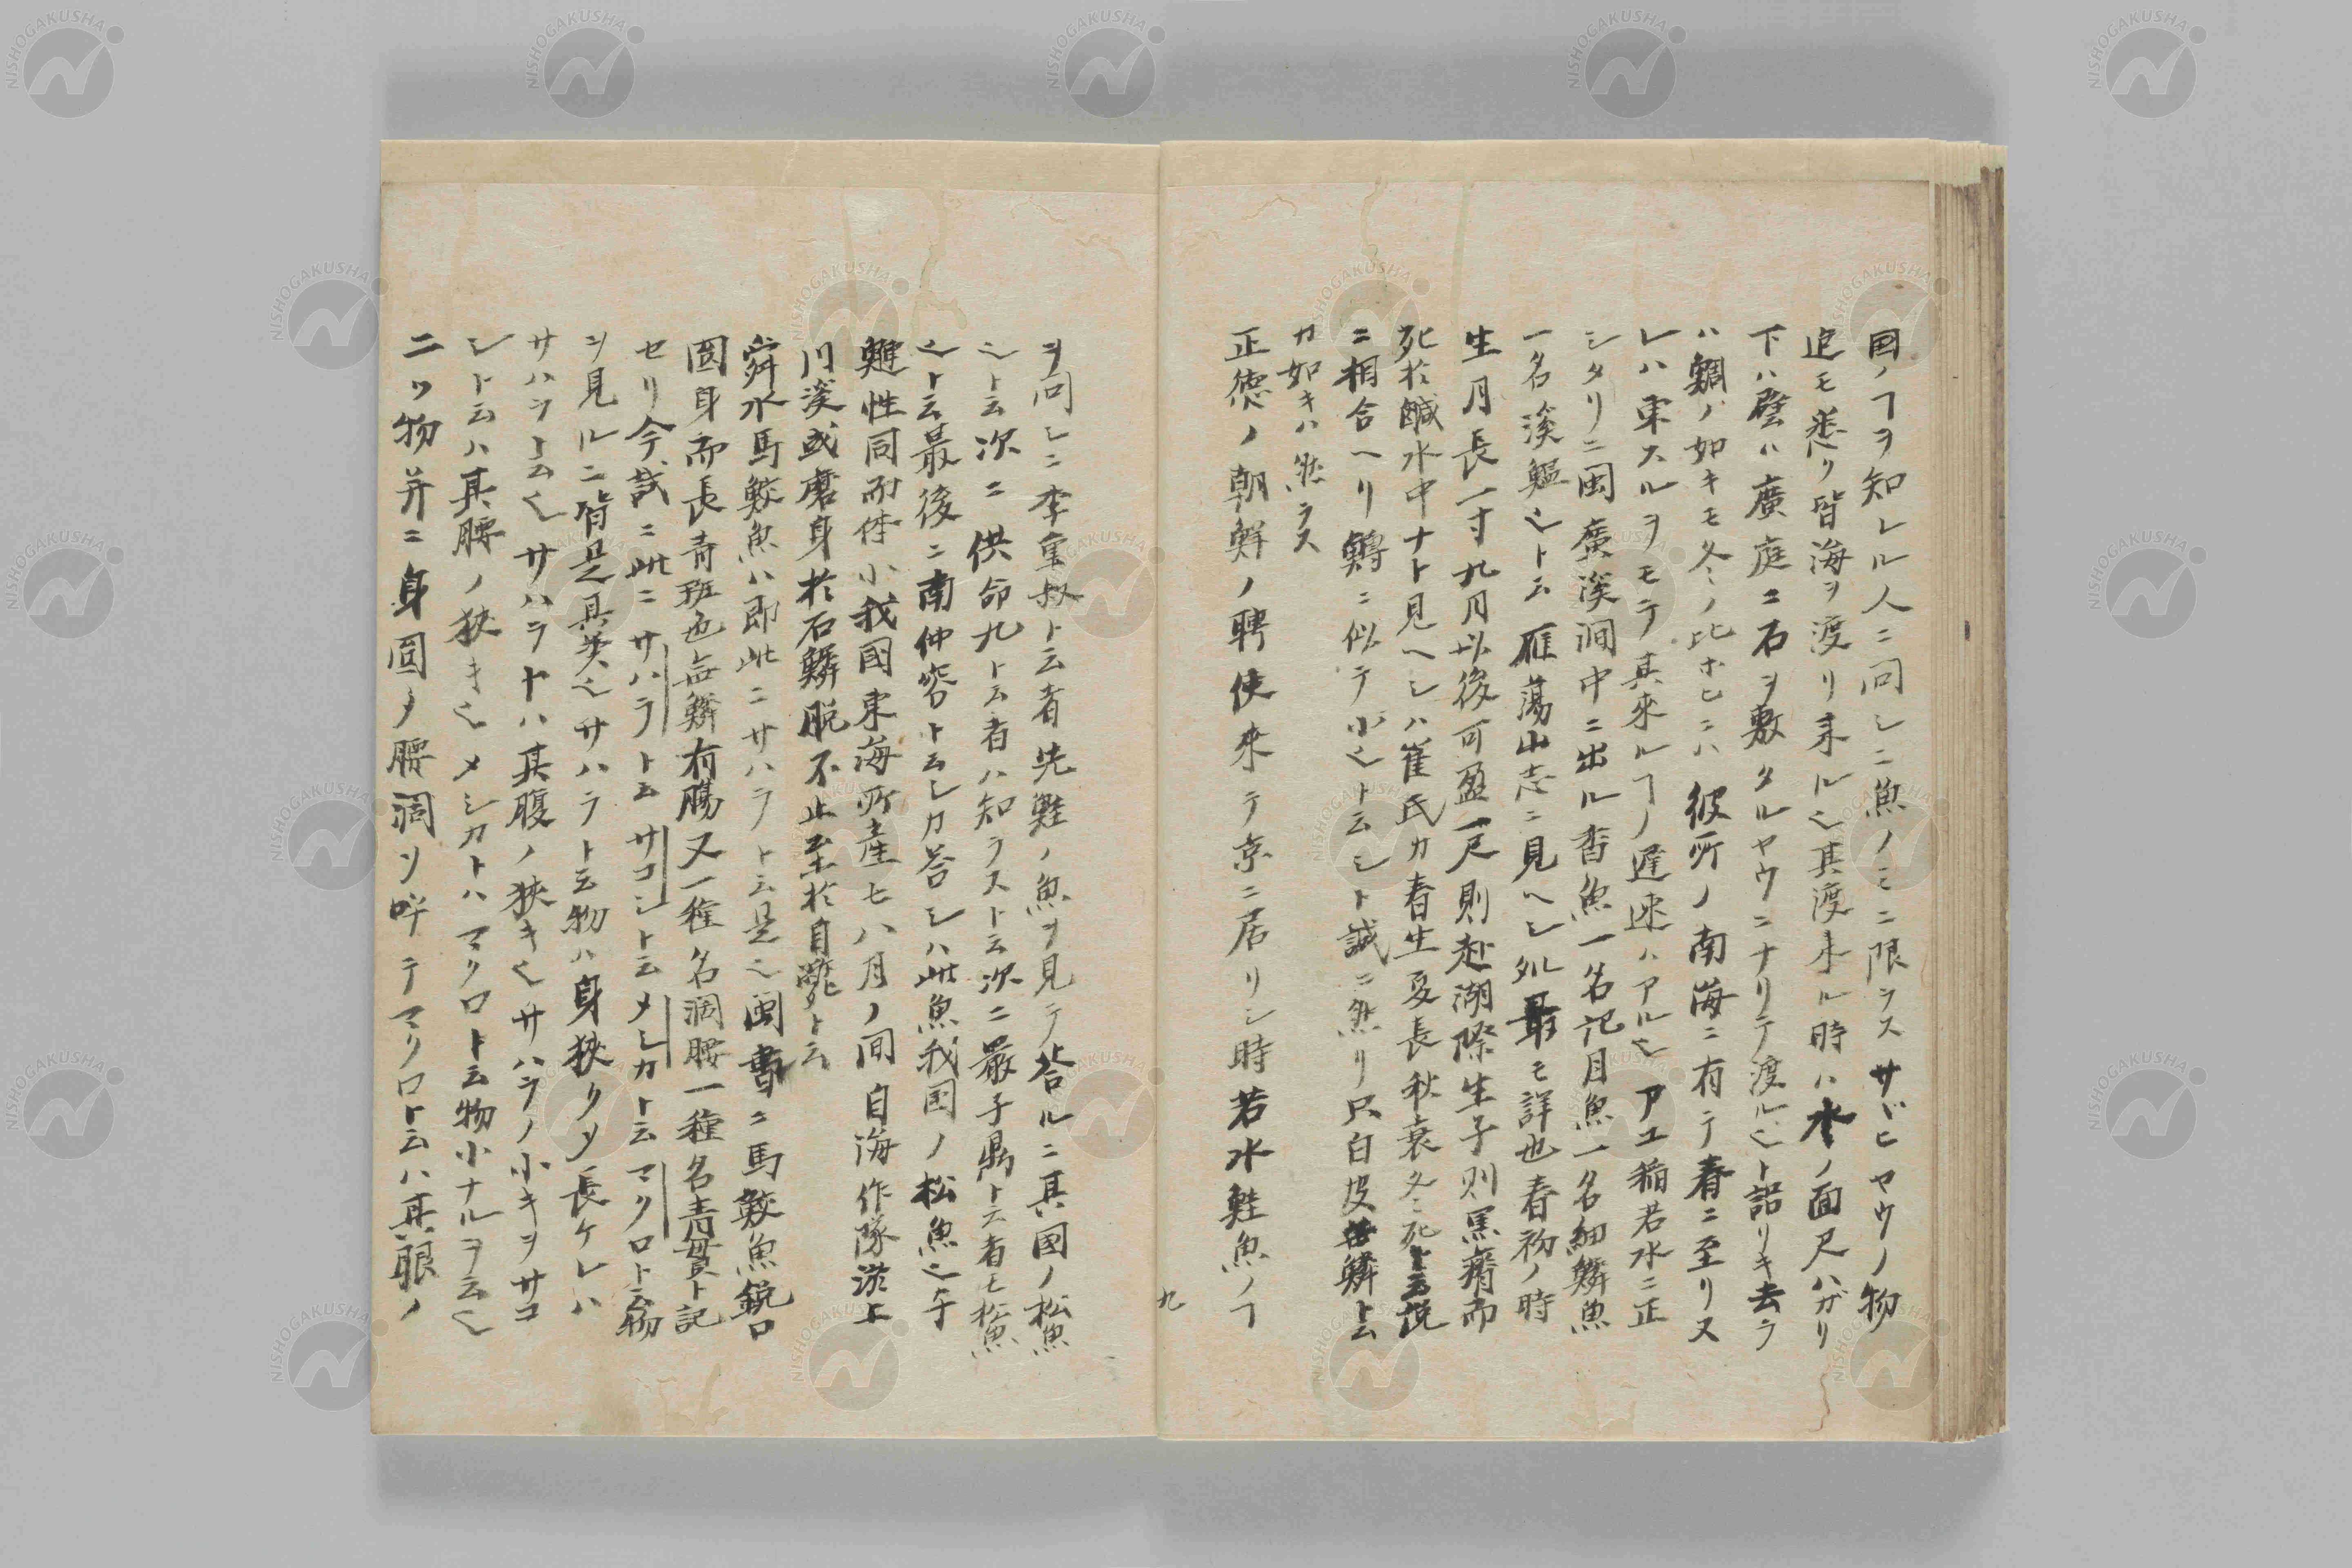 国ノヿヲ知レル人ニ問シニ魚ノミニ限ラスサヾヒヤウノ物
迠モ悉ク皆海ヲ渡リ来ル也其渡来ル時ハ水ノ面尺ハガリ
下ハ譬ハ廣庭ニ石ヲ敷タルヤウニナリテ渡ル也ト語リキ去ラ
ハ鯛ノ如キモ冬ノ比ホヒニハ彼所ノ南海ニ有テ春ニ至リヌ
レハ東スルヲモテ其来ルヿノ遅速ハアル也 アユ稲若水ニ正
シタリニ閩廣溪澗中ニ出ル香魚一名記月魚一名細鱗魚
一名溪鰮也ト云雁蕩山志ニ見ヘシ処最モ詳也春初ノ時
生月長一寸九月以後可盈一尺則赴湖際生子則黒瘠而
死於鹹水中ナト見ヘシハ崔氏カ春生夏長秋衰冬死ト云説
ニ相合ヘリ鱘ニ似テ小也ト云シト誠ニ然リ只白皮無鱗ト云
カ如キハ然ラス
正徳ノ朝鮮ノ聘使来テ京ニ居リシ時若水鮭魚ノヿ
九
ヲ問シニ李重叔ト云者先鮭ノ魚ヲ見テ答ルニ其國ノ松魚
也ト云次ニ供命九ト云者ハ知ラスト云次ニ嚴子鼎ト云者モ松魚
也ト云最後ニ南仲容ト云シカ答シハ此魚我国ノ松魚也年
魚雖性同而体小我國東海所産七八月ノ間自海作隊泝上
川溪或磨身於石鱗脱不止至於自斃ト云
舜水馬鮫魚ハ即此ニサハラト云是也閩書ニ馬鮫魚鋭口
圓身而長青斑也無鱗有腸又一種名澗腰一種名青貫ト記
セリ今試ニ此ニサハラト云サコシト云メシカト云マクロト云物
ヲ見ルニ皆是其類也サハラト云物ハ身狭クシテ長ケレハ
サハラト云也サハラトハ其腹ノ狭キ也サハラノ小キヲサコ
シト云ハ其腰ノ狭キ也メシカトハマクロト云物小ナルヲ云也
二ツ物并ニ身圓ク腰濶ソ呼テマクロト云ハ其眼ノ